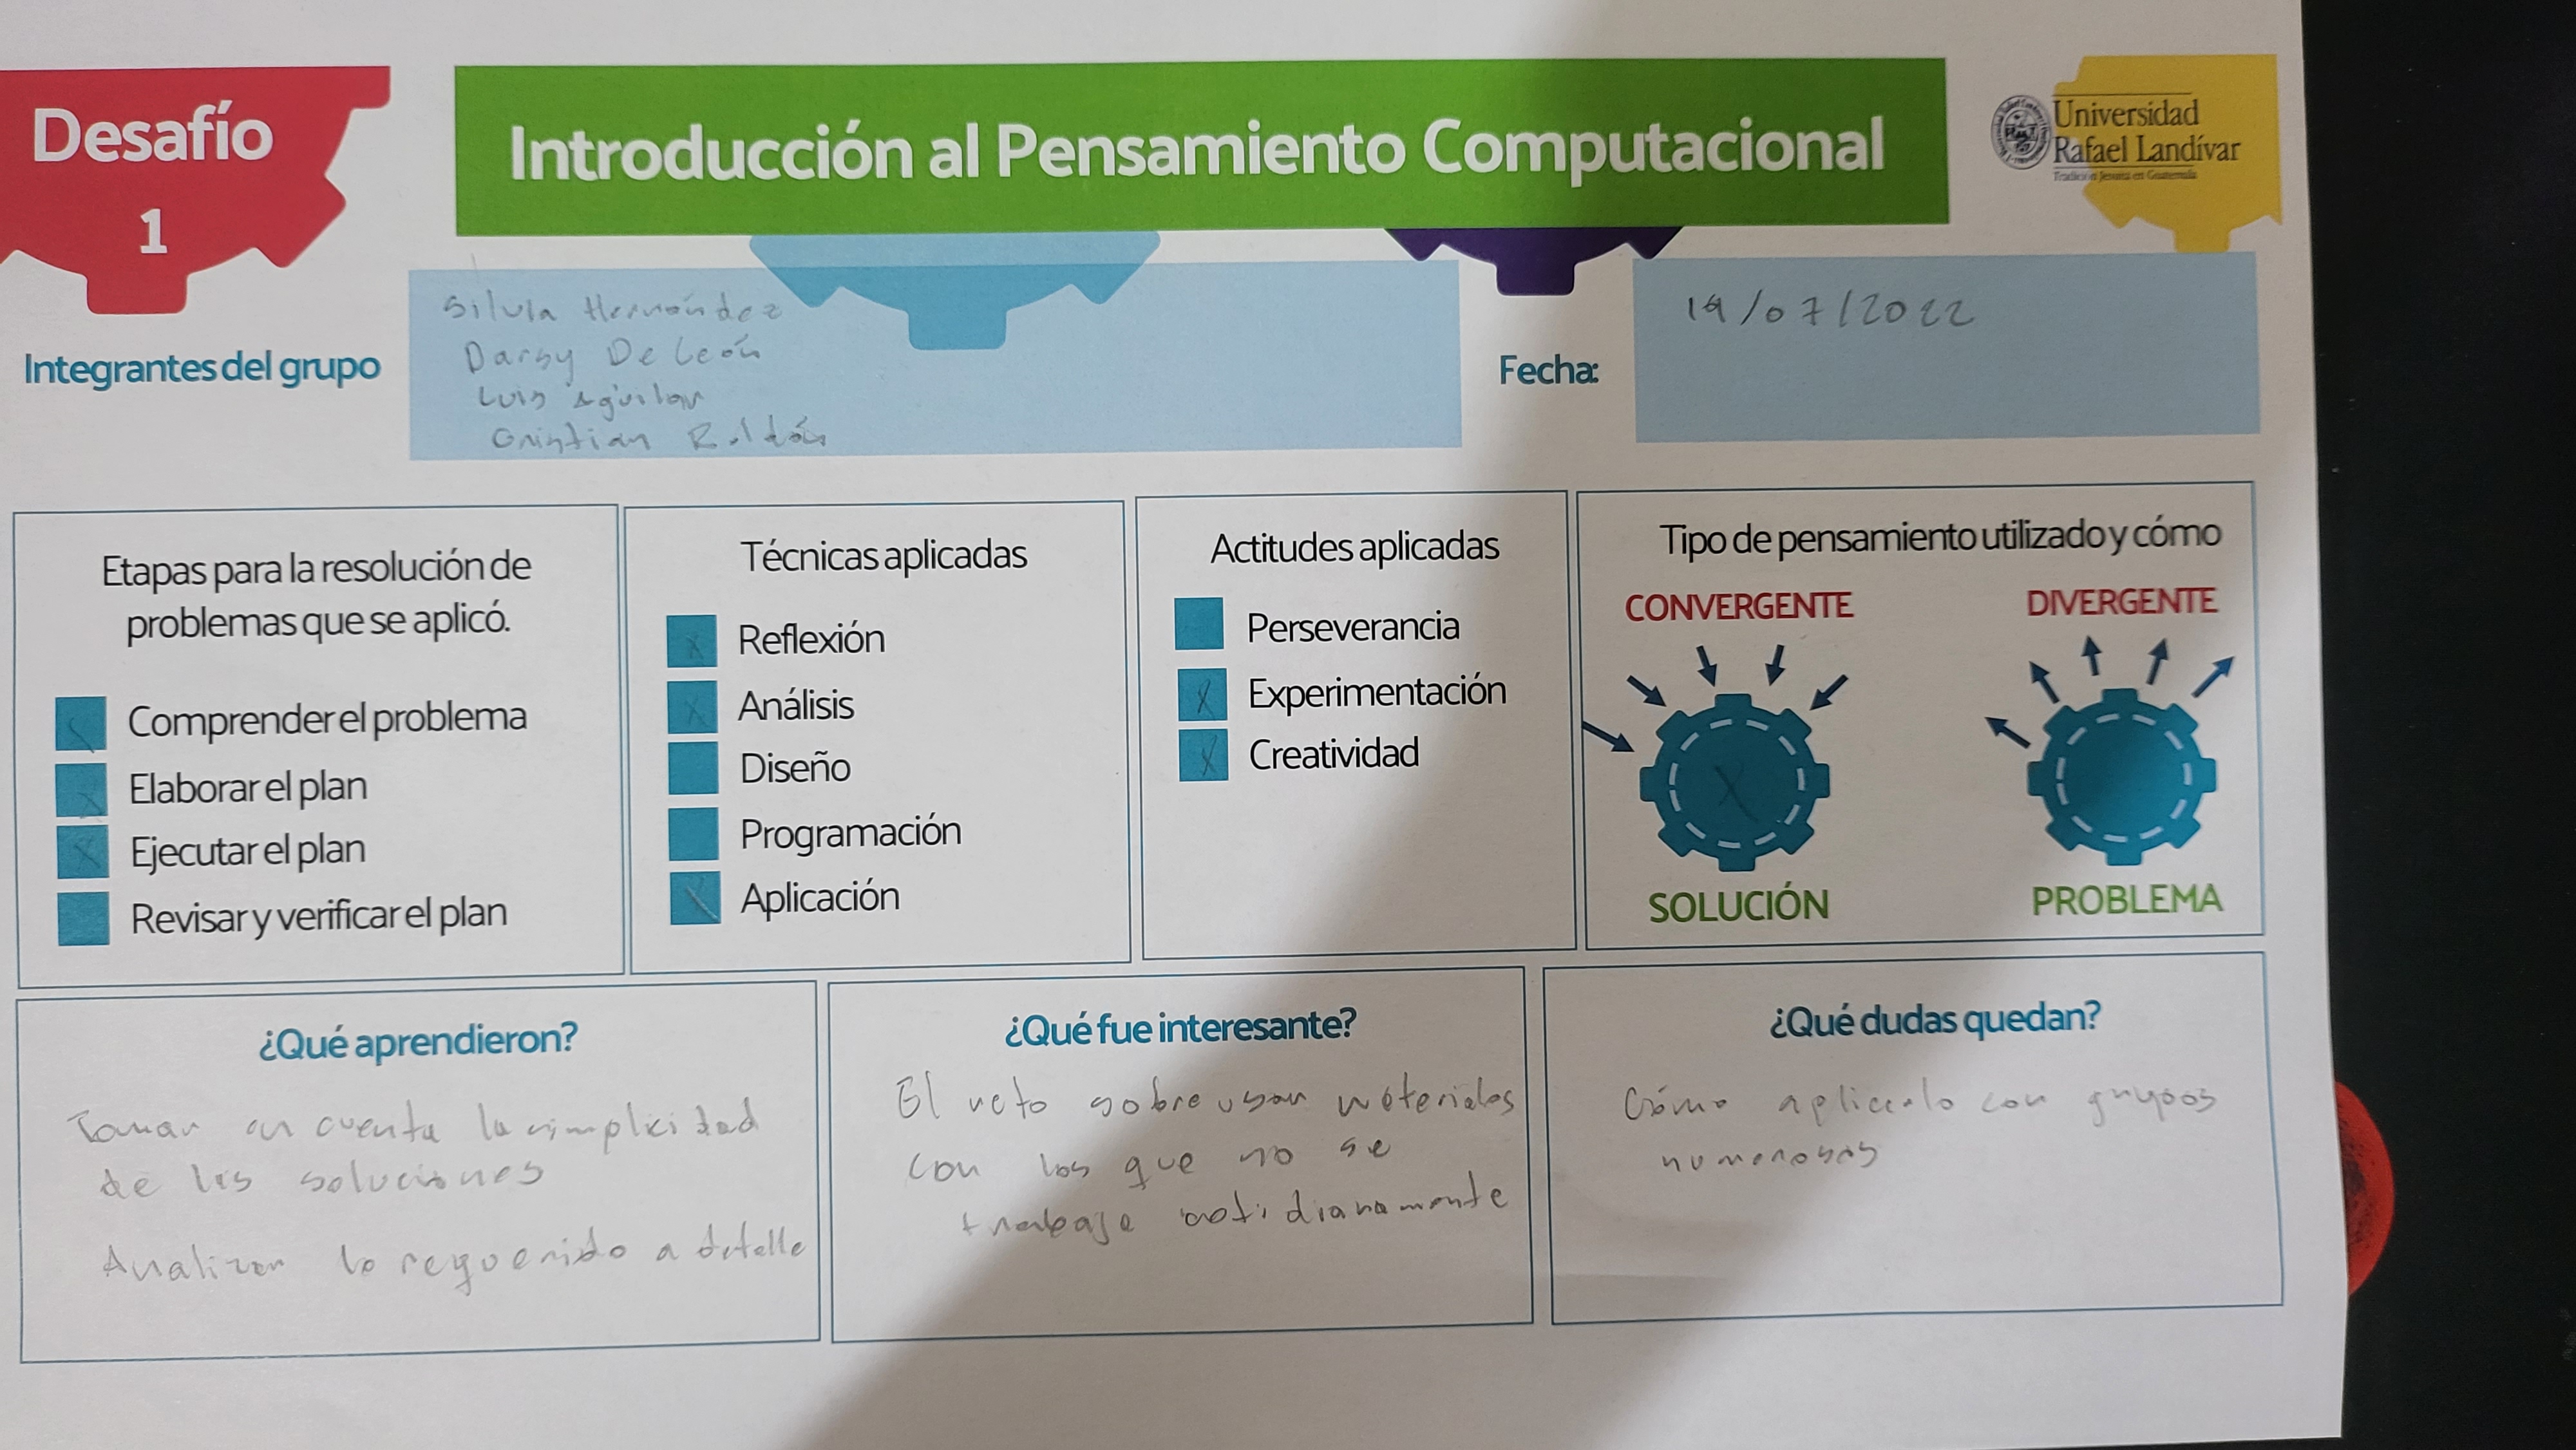 Desafío
1
Introducción al Pensamiento Computacional
Universidad
Rafael Landívar
Tradición Jesuita en Guatemala
Integrantes del grupo
Silvia Hernández
Darsy De León
Luis Aguilar
Cristian Roldán
Fecha:
19/07/2022
Etapas para la resolución de
problemas que se aplicó.
Comprender el problema
X Elaborar el plan
X Ejecutar el plan
Revisar y verificar el plan
Técnicas aplicadas
X Reflexión
X Análisis
Diseño
Programación
Aplicación
Actitudes aplicadas
Perseverancia
X Experimentación
X Creatividad
Tipo de pensamiento utilizado y cómo
CONVERGENTE
X
SOLUCIÓN
DIVERGENTE
PROBLEMA
¿Qué aprendieron?
Tomar en cuenta la simplicidad
de las soluciones
Analizar lo requerido a detalle
¿Qué fue interesante?
El reto sobre usar materiales
con los que no se
trabaja cotidianamente
¿Qué dudas quedan?
Cómo aplicarlo con grupos
numerosos